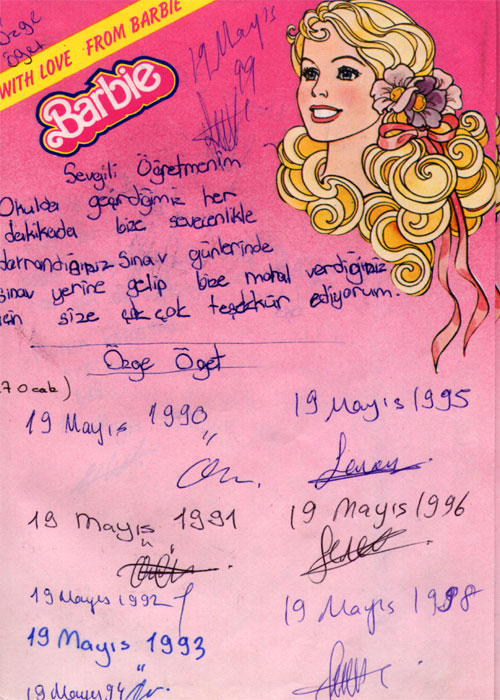 özge
öget
WITH LOVE FROM BARBIE
Barbie
19 Mayıs
99
Sevgili Öğretmenim
Okulda geçirdiğimiz her
dakikada bize sevecenlikle
davrandığınız sınav günlerinde
sınav yerine gelip bize moral verdiğiniz
için size çok çok teşekkür ediyorum.
Özge Öget
7 Ocak)
19 Mayıs 1990
19 Mayıs 1995
19 Mayıs 1991
19 Mayıs 1996
19 Mayıs 1992
19 Mayıs 1998
19 Mayıs 1993
19 Mayıs 94